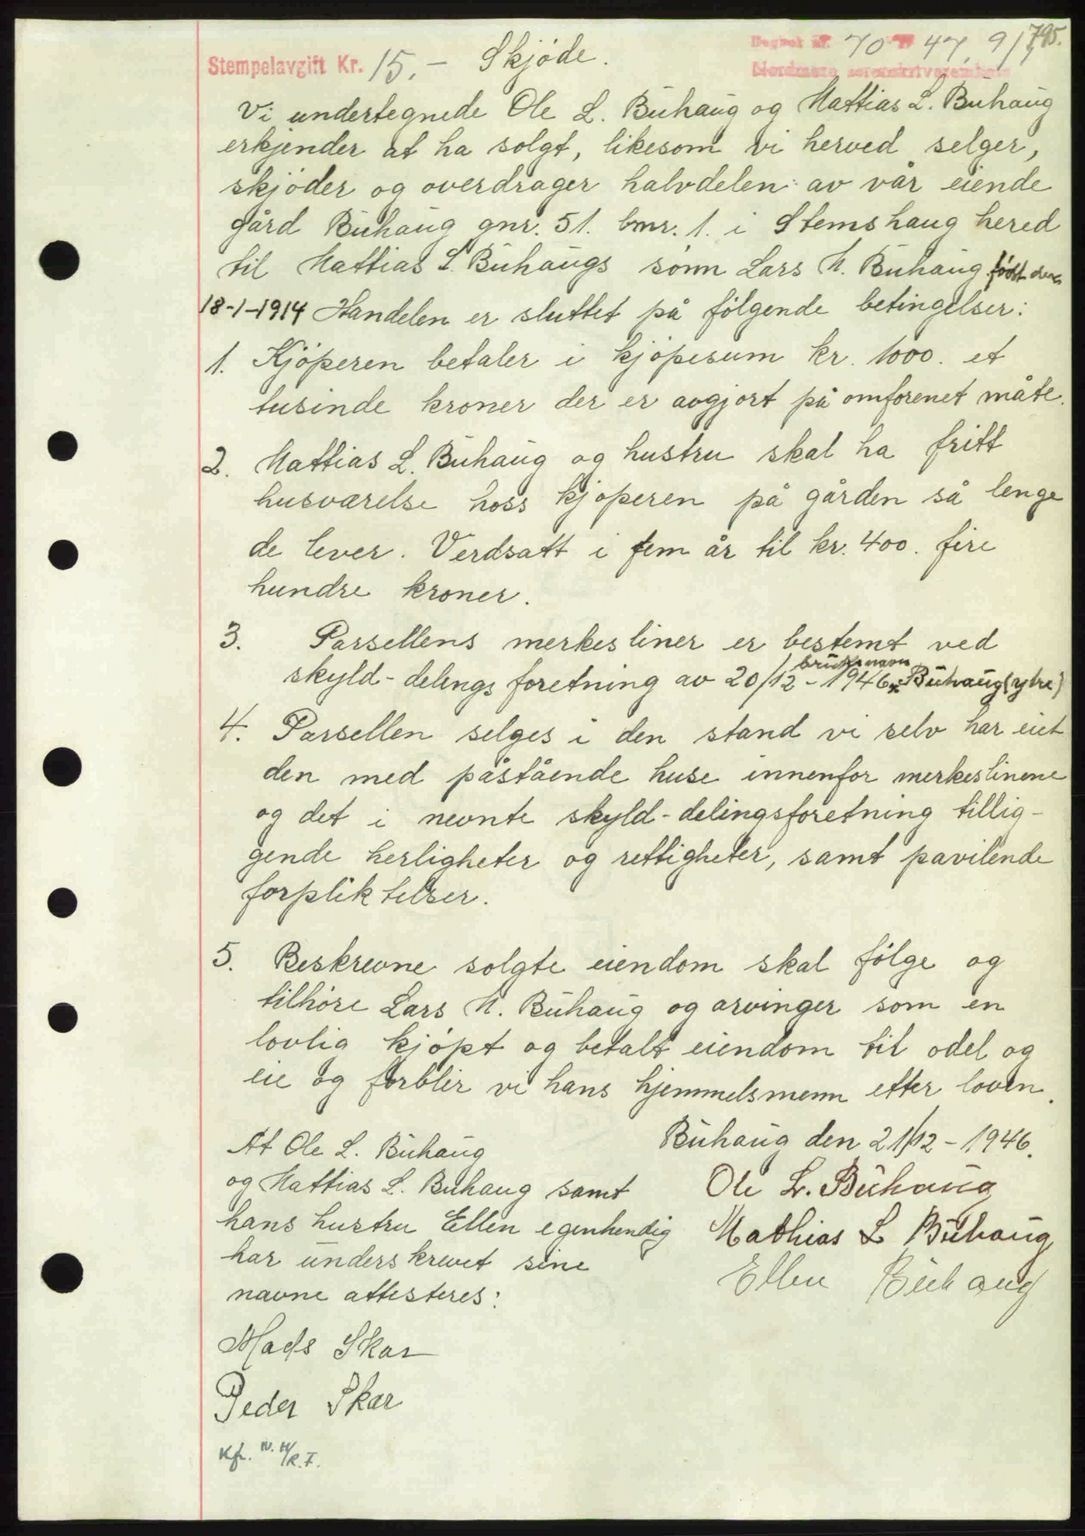 795.
Stempelavgift Kr. 15.- Skjøde. Dagbok nr. 70 47, 9/1
Nordmøre sorenskriverembete
Vi undertegnede Ole L. Buhaug og Mattias L. Buhaug
erkjender at ha solgt, likesom vi herved selger,
skjøder og overdrager halvdelen av vår eiende
gård Buhaug gnr. 51. bnr. 1. i Stemshaug hered
til Mattias L. Buhaugs sønn Lars M. Buhaug født den
18-1-1914 Handelen er sluttet på følgende betingelser:
1. Kjøperen betaler i kjøpesum kr. 1000. et
tusinde kroner der er avgjort på omforenet måte.
2. Mattias L. Buhaug og hustru skal ha fritt
husværelse hoss kjøperen på gården så lenge
de lever. Verdsatt i fem år til kr. 400. fire
hundre kroner.
3. Parsellens merkesliner er bestemt ved
bruksnavn
skyld-delings foretning av 20/12-1946 x Buhaug (ytre)
4. Parsellen selges i den stand vi selv har eiet
den med påstående huse innenfor merkeslinene
og det i nevnte skyld-delingsforetning tillig-
gende herligheter og rettigheter, samt pavilende
forpliktelser.
5. Beskrevne solgte eiendom skal følge og
tilhøre Lars M. Buhaug og arvinger som en
lovlig kjøpt og betalt eiendom til odel og
eie og forblir vi hans hjemmelsmenn etter loven.
Buhaug den 21/12-1946.
At Ole L. Buhaug
og Mattias L. Buhaug samt
hans hustru Ellen egenhendig
har underskrevet sine
navne attesteres:
Ole L. Buhaug
Mathias L Buhaug
Ellen Buhaug
Mads Skar
Peder Skar
Kfr. N.H/R.F.